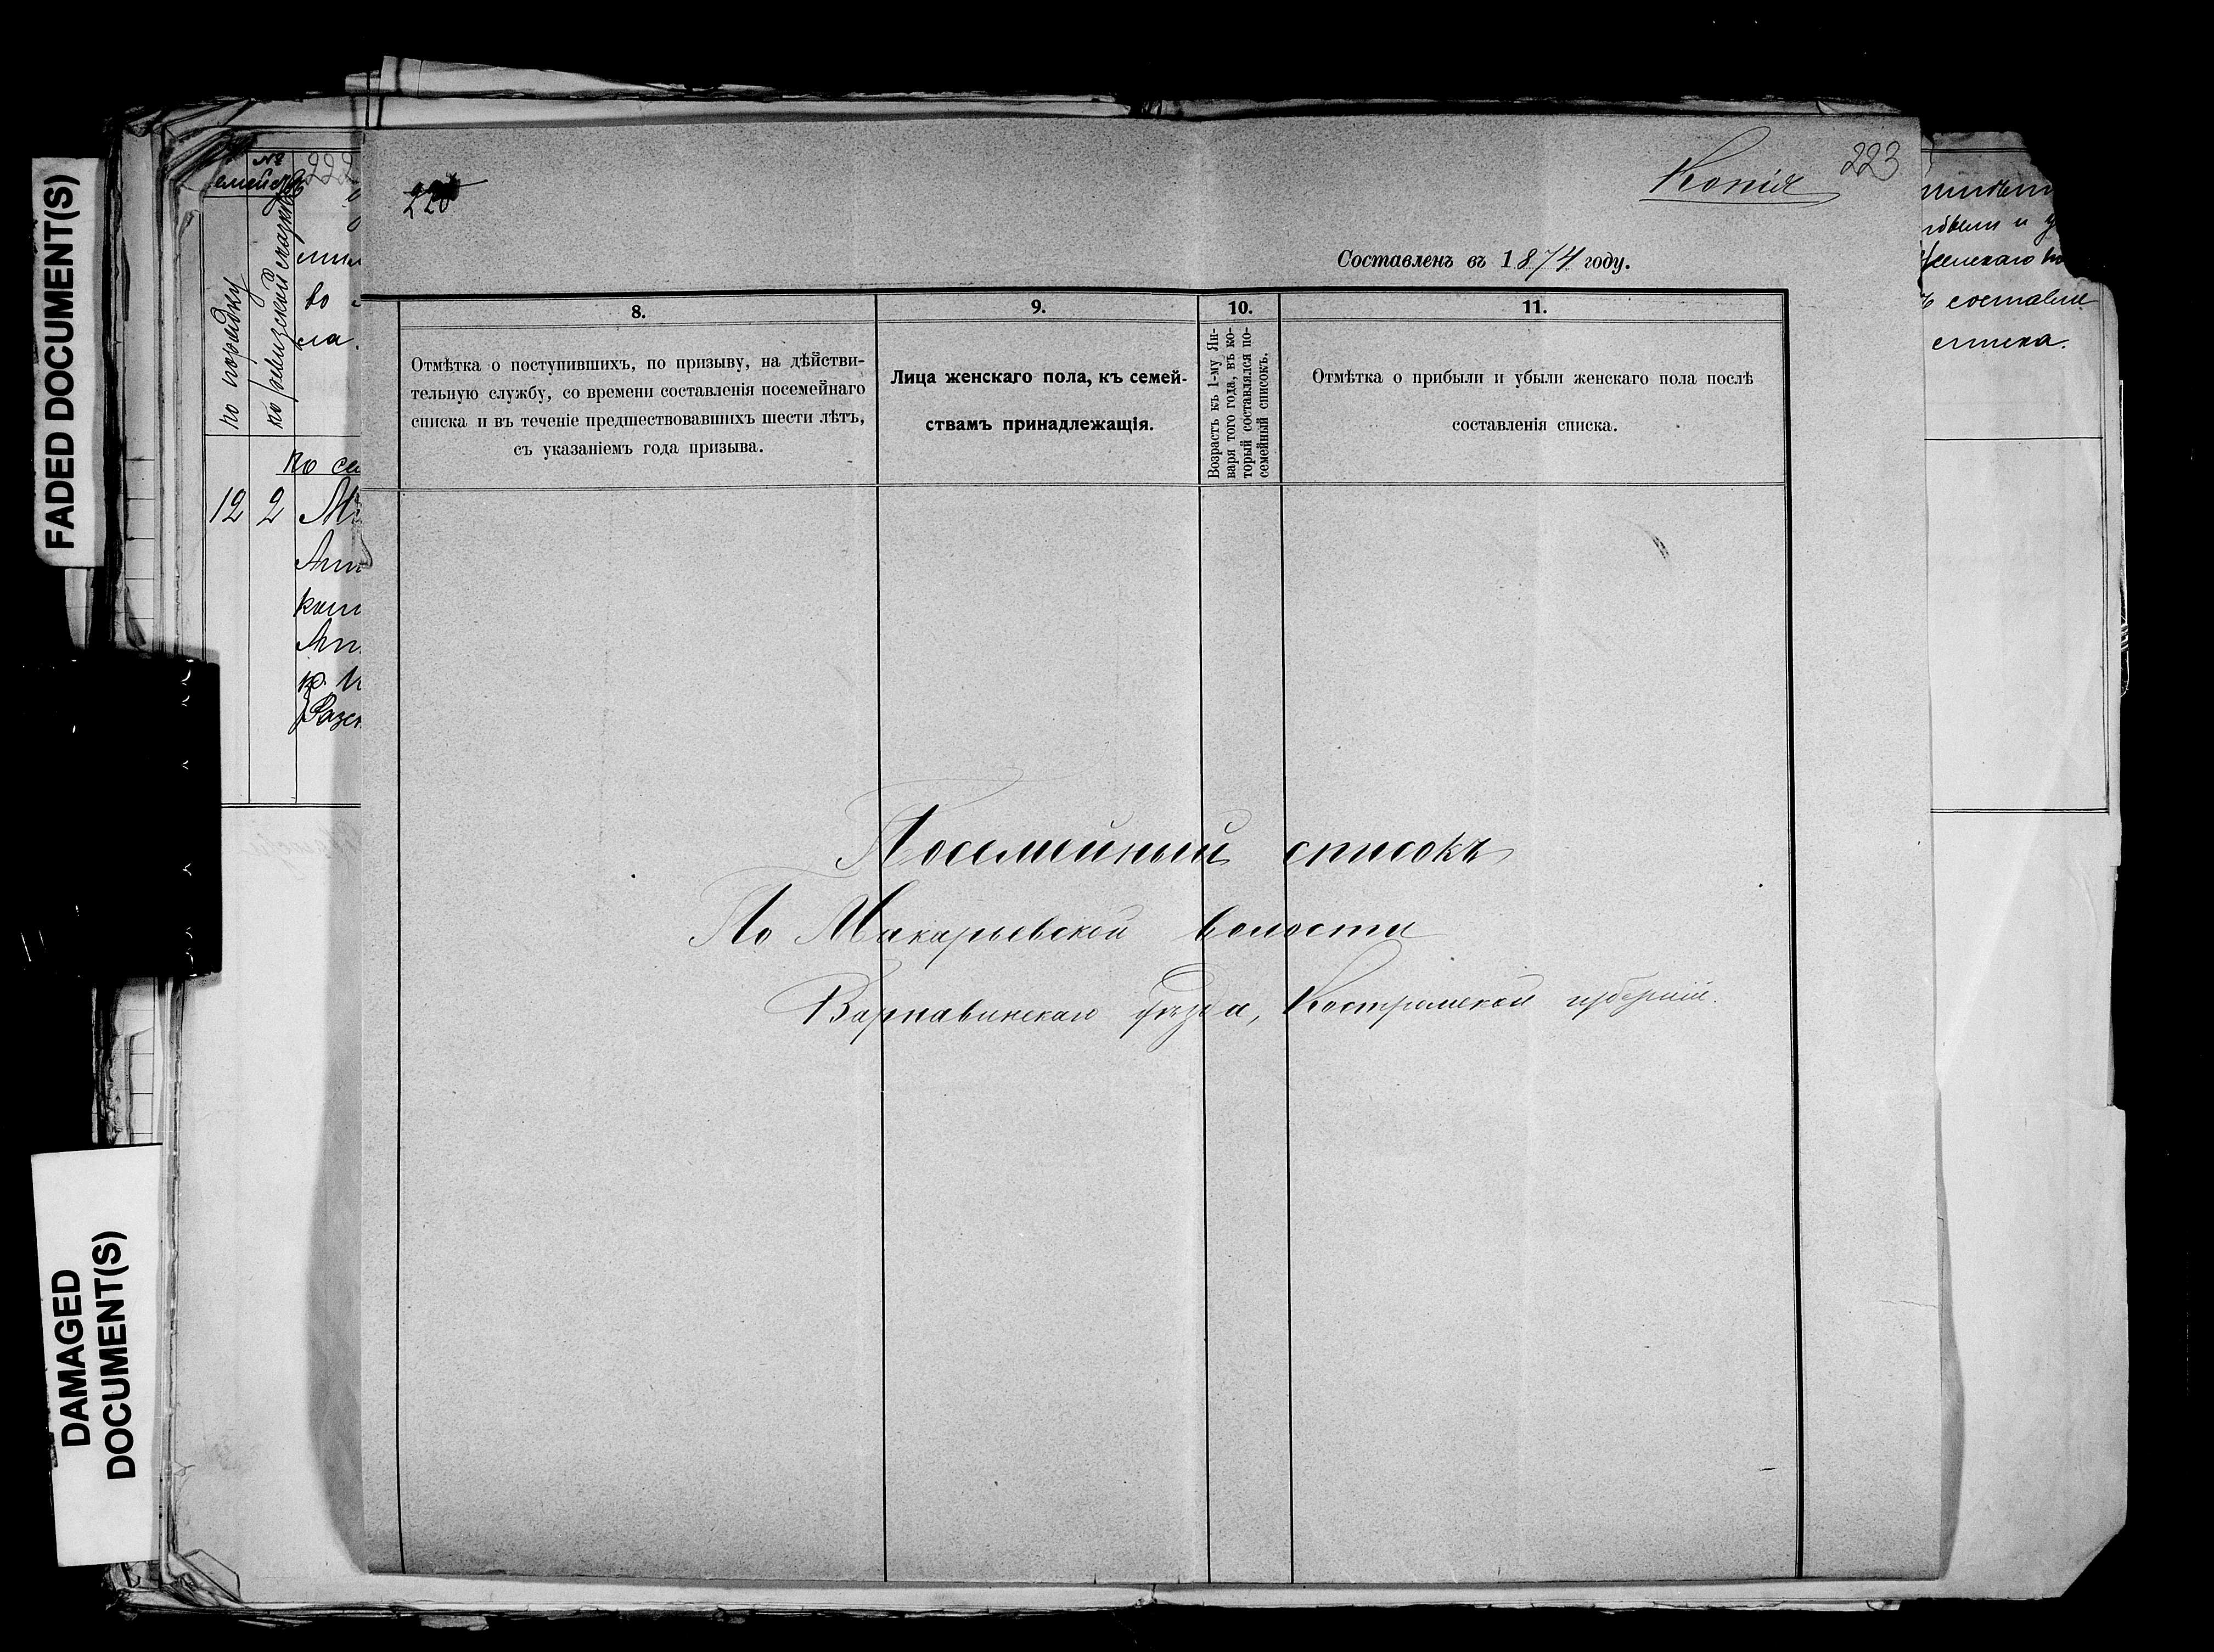 FADED DOCUMENT(S)
DAMAGED
DOCUMENT(S)
№
222
по порядку
по ревизской сказкѣ
во
ла.
12 2
223
Копія
Составленъ въ 1874 году.
8.
Отмѣтка о поступившихъ, по призыву, на дѣйстви-
тельную службу, со времени составленія посемейнаго
списка и въ теченіе предшествовавшихъ шести лѣтъ,
съ указаніемъ года призыва.
9.
Лица женскаго пола, къ семей-
ствамъ принадлежащія.
10.
Возрастъ къ 1-му Ян-
варя того года, въ ко-
торый составлялся по-
семейный списокъ.
11.
Отмѣтка о прибыли и убыли женскаго пола послѣ
составленія списка.
Посемейный списокъ
По Макарьевской волости
Варнавинскаго уѣзда, Костромской губерніи.